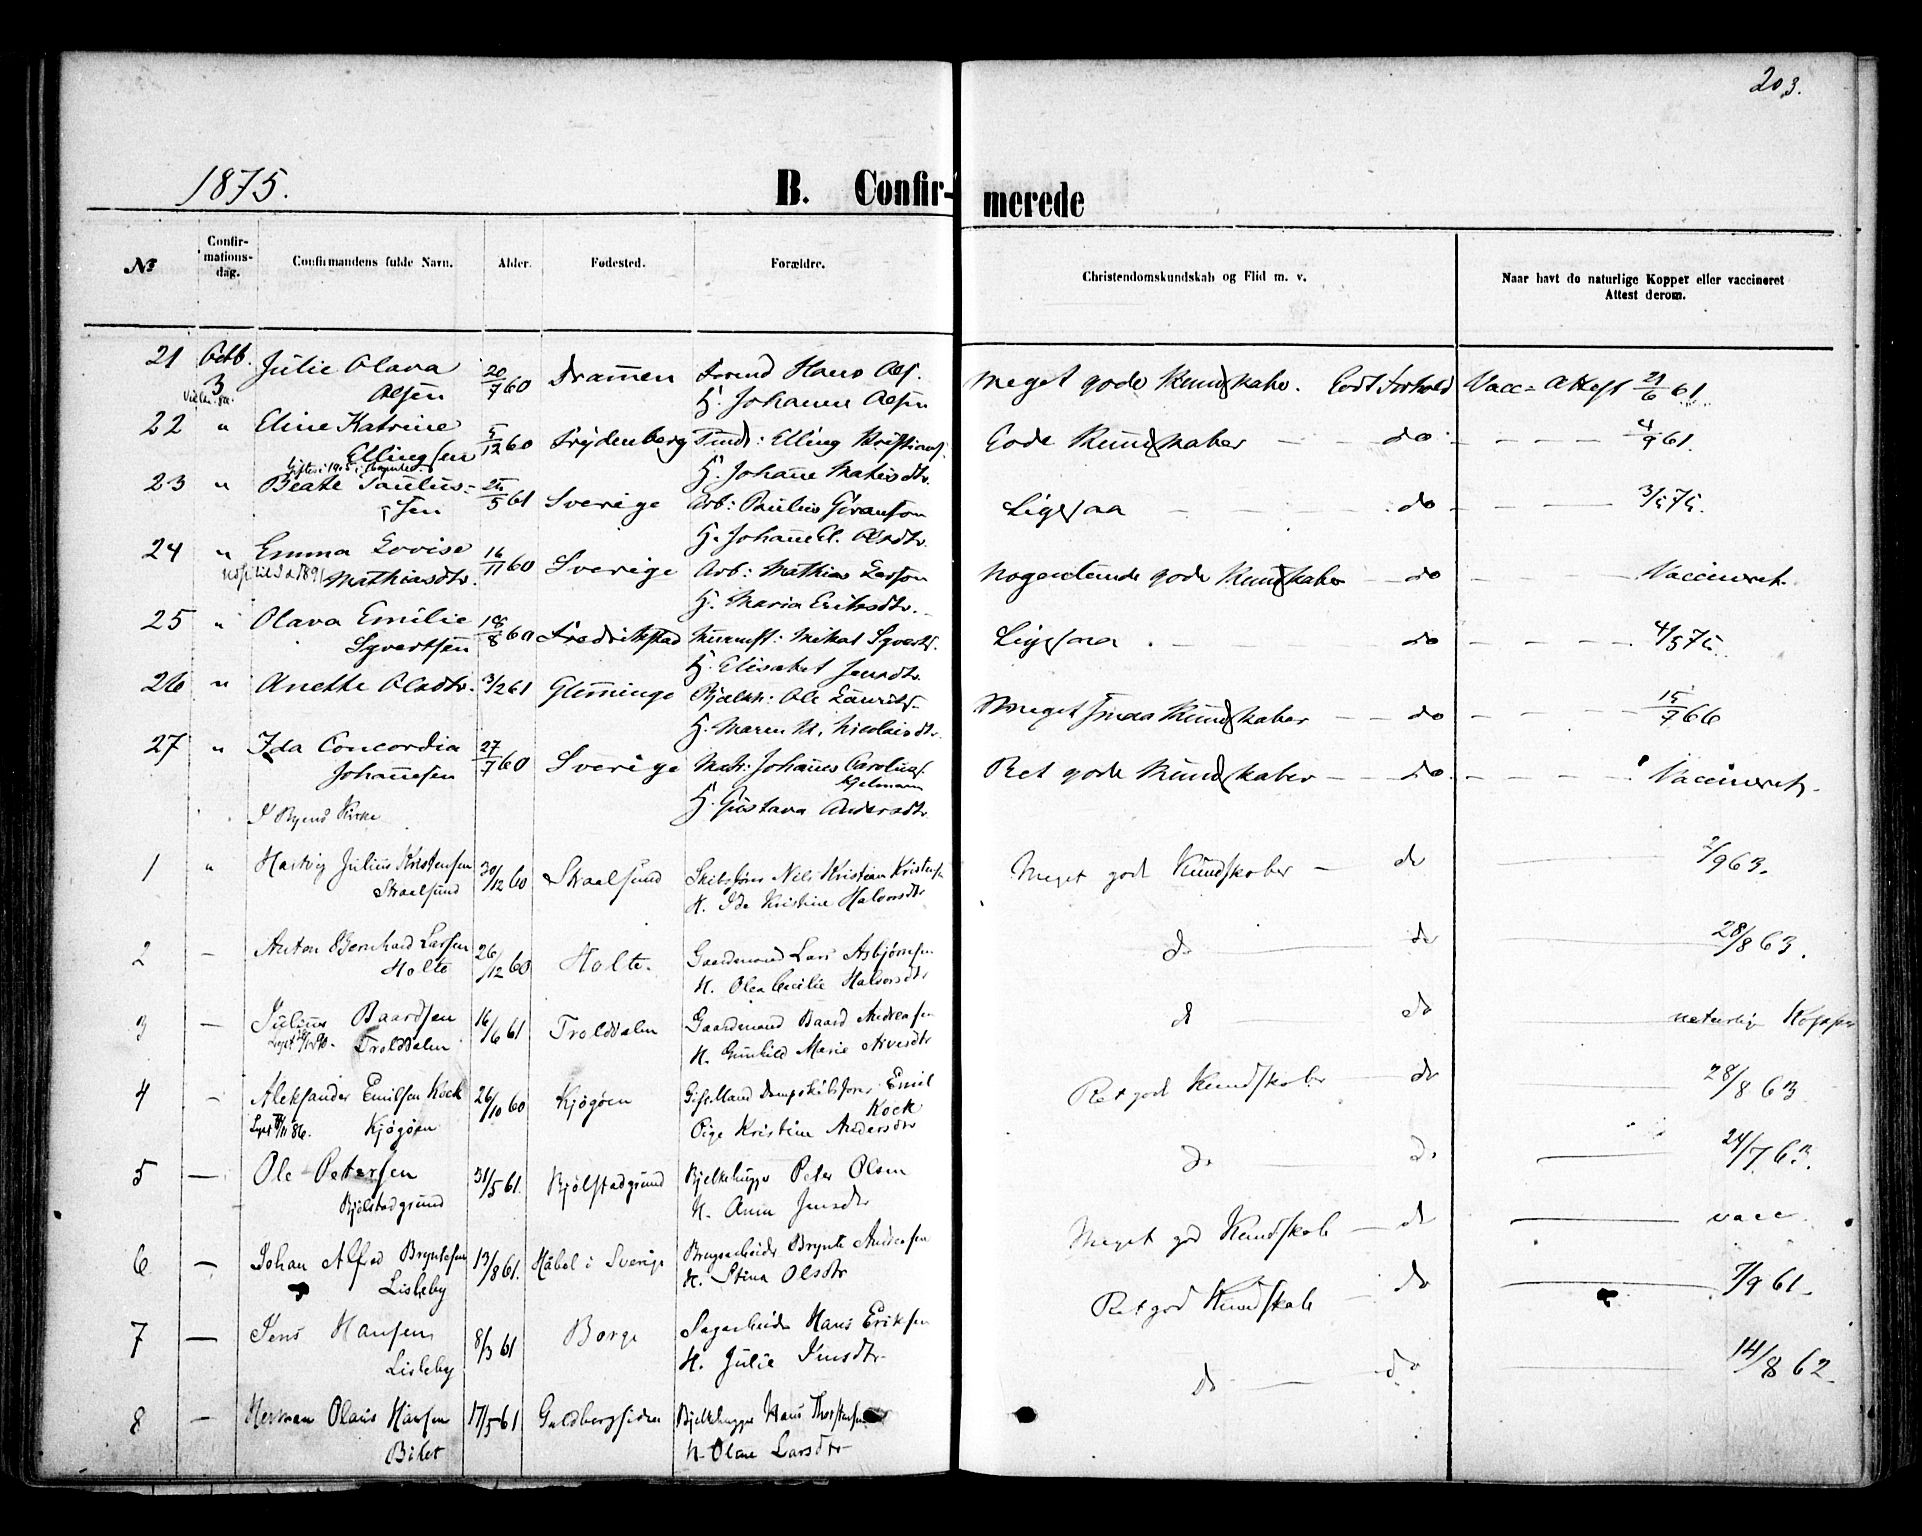 203.
1875.
B. Confirmerede
№
Confirmationsdag.
Confirmandens fulde Navn.
Alder.
Fødested.
Forældre.
Christendomskundskab og Flid m. v.
Naar havt de naturlige Kopper eller vaccineret
Attest derom.
21 Octb. 3 Julie Olava 20/7 60 Dramen Hans Ols. Meget gode Kundskabr. Godt Forhold Vacc-Attest 21/6 61.
Olsen H. Johanne Olsen
22 " Eline Katrine 5/12 60 Frydenberg Elling Kristians. Gode Kundskaber - do - 4/9 61.
Ellingsen H. Johane Mathisdtr.
23 " Beate Paulus- 25/5 61 Sverige Arb: Paulus Göranson Ligesaa - do - 3/5 75.
sen H. Johane Olsdtr.
24 " Emma Lovise 16/11 60 Sverige Arb: Mathias Larson Nogenlunde gode Kundskaber - do - Vaccineret.
Mathiasdtr. H. Maria Eriksdtr.
25 " Olava Emilie 18/8 60 Fredrikstad Murmst: Mikal Syverts. Ligesaa - do - 4/5 75.
Syvertsen H. Elisabet Jensdtr.
26 " Anette Olsdtr. 3/2 61 Glemminge Bjælkh: Ole Laurits. Meget smaa Kundskaber - do - 15/7 66
H. Maren M. Nicolaisdtr.
27 " Ida Concordia 27/7 60 Sverige Matr: Johannes Carolius. Ret gode Kundskaber - do - Vaccineret.
Johannesen
H. Gustava Andersdtr.
I Rygens Kirke
1 " Hartvig Julius Kristensen 30/12 60 Skaalsund Skibsfører Nils Kristian Kristensen Meget god Kundskaber - do 2/9 63.
Skaalsund H. Ida Kristine Halvorsdtr
2 - Anton Bernhard Larsen 26/12 60 Holte. Gaardmand Lars Asbjørnsen do do 28/8 63.
Holte H. Olea Cecilie Halvorsdtr
3 - Julius Baardsen 16/6 61 Trolddalen Gaardmand Baard Andreasen do do naturlig Kopper
Trolddalen H. Gunhild Marie Arvesdtr
4 - Aleksander Emilsen Kock 26/10 60 Kjøgøen Gift Mand Dampskibsfører Emil Ret god Kundskaber - do 28/8 63
Kock
Kjøgøen Pige Kristine Andersdtr
5 - Ole Petersen 31/5 61. Bjølstadgrund Bjelkehugger Peter Olsen do do 24/7 63.
Bjølstadgrund H. Anne Jensdtr
6 - Johan Alfred Bryntesen 13/8 61. Håbol i Sverige Brugsarbeider Brynte Andreasen Meget god Kundskab - do vacc.
Lisleby H. Stina Olsdtr
7 - Jens Hansen 8/3 61 Borge Sagarbeider Hans Eriksen Ret god Kundskab - do 7/9 61.
Lisleby H. Julie Jensdtr
8 - Herman Olaus Hansen 17/5 61 Guldbergsiden Bjelkehugger Hans Thorstensen do do 14/8 62.
Bilet H. Olene Larsdtr